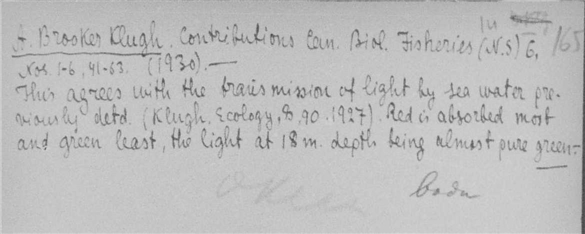 A. Brooker Klugh. Contributions Can. Biol. Fisheries (N.S) 6,
Nos. 1-6, 41-63. (1930).—
This agrees with the transmission of light by sea water pre-
viously detd. (Klugh, Ecology, 8, 90. 1927). Red is absorbed most
and green least, the light at 18 m. depth being almost pure green—